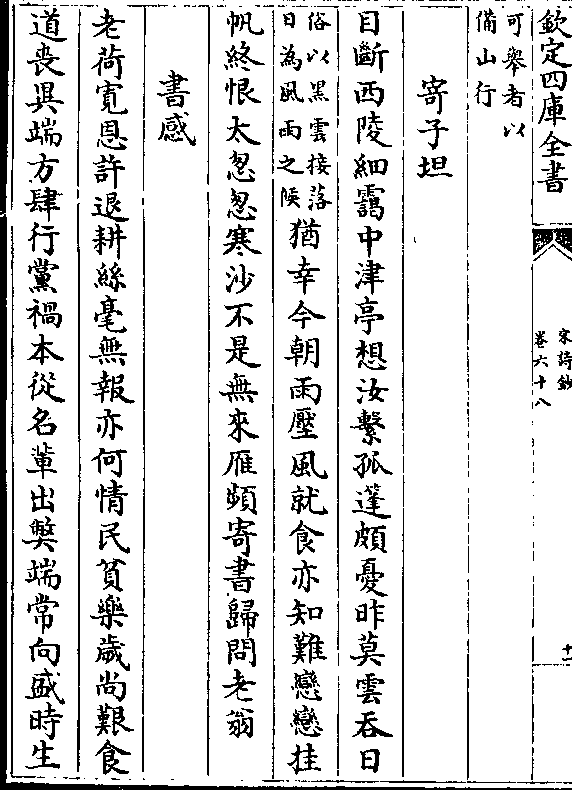 欽定四庫全書
宋詩鈔
卷六十八
十二
可轝者以
備山行
寄子坦
目斷西陵細靄中津亭想汝繫孤蓬頗憂昨莫雲吞日
俗以黑雲接落
日為風雨之候
猶幸今朝雨壓風就食亦知難戀戀挂
帆終恨太怱怱寒沙不是無來雁頻寄書歸問老翁
書感
老荷寛恩許退耕絲毫無報亦何情民貧樂歲尚艱食
道喪異端方肆行黨禍本從名軰出弊端常向盛時生